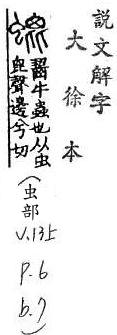 說文解字
大徐本
螕
齧牛蟲也从虫
𣬈聲邊兮切
(虫部
V.13上
P.6
b.7)